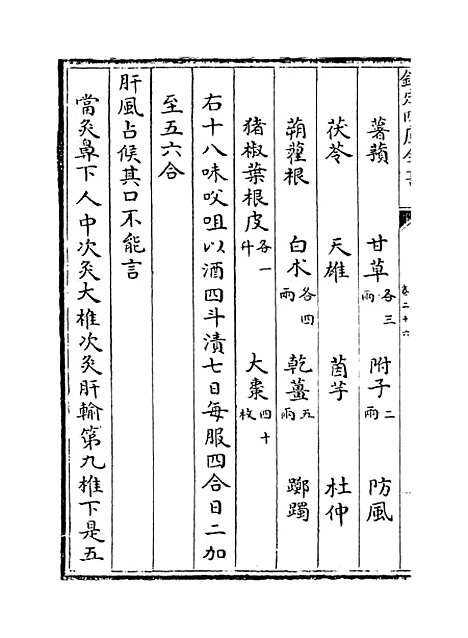 欽定四庫全書
卷二十六
薯蕷 甘草各三兩 附子二兩 防風
茯苓 天雄 茵芋 杜仲
蒴藋根 白术各四兩 乾薑五兩 躑躅
猪椒葉根皮各一升 大棗四十枚
右十八味㕮咀以酒四斗漬七日每服四合日二加
至五六合
肝風占候其口不能言
當灸鼻下人中次灸大椎次灸肝輸第九椎下是五